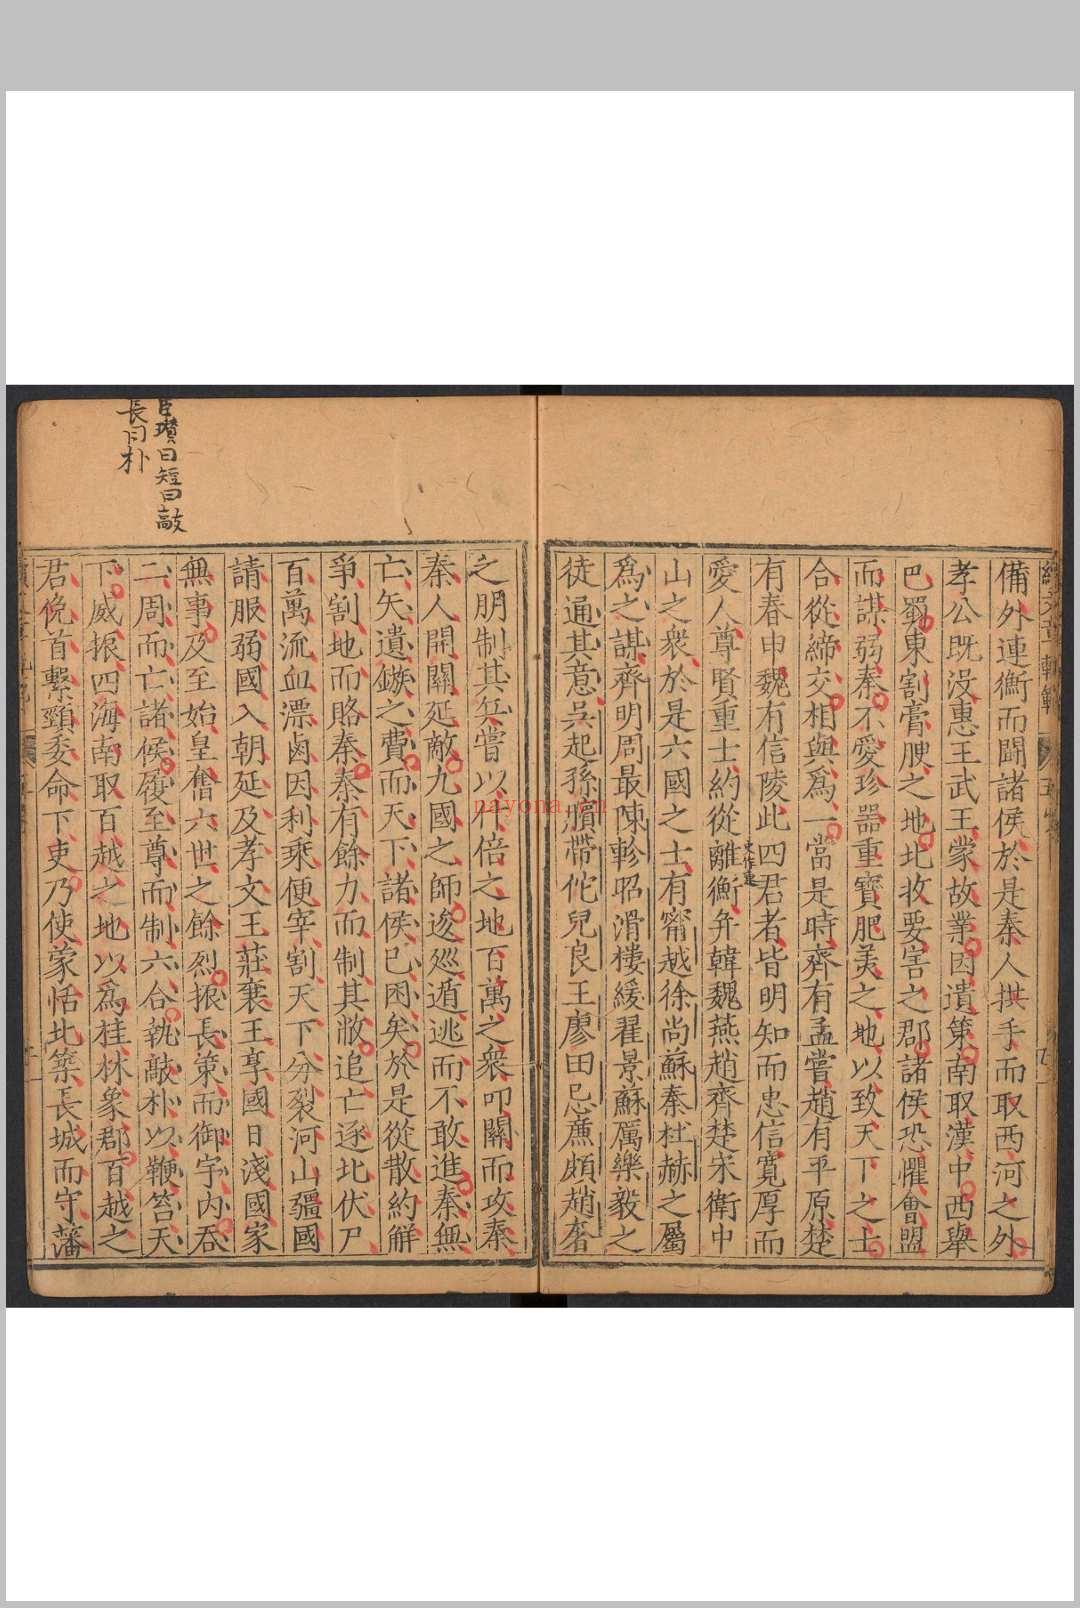 備外連衡而鬬諸侯於是秦人拱手而取西河之外
孝公既没惠王武王蒙故業因遺策南取漢中西舉
巴蜀東割膏腴之地北收要害之郡諸侯恐懼會盟
而謀弱秦不愛珍器重寶肥美之地以致天下之士
合從締交相與爲一當是時齊有孟嘗趙有平原楚
有春申魏有信陵此四君者皆明知而忠信寬厚而
愛人尊賢重士約從離衡并韓魏燕趙齊楚宋衛中
山之衆於是六國之士有甯越徐尚蘇秦杜赫之屬
爲之謀齊明周最陳軫昭滑樓緩翟景蘇厲樂毅之
徒通其意吳起孫臏帶佗兒良王廖田忌廉頗趙奢
之朋制其兵嘗以什倍之地百萬之衆叩關而攻秦
秦人開關延敵九國之師逡廵遁逃而不敢進秦無
亡矢遺鏃之費而天下諸侯已困矣於是從散約解
爭割地而賂秦秦有餘力而制其敝追亡逐北伏尸
百萬流血漂鹵因利乘便宰割天下分裂河山疆國
請服弱國入朝延及孝文王莊襄王享國日淺國家
無事及至始皇奮六世之餘烈振長策而御宇内吞
二周而亡諸侯履至尊而制六合執敲朴以鞭笞天
下威振四海南取百越之地以爲桂林象郡百越之
君俛首繫頸委命下吏乃使蒙恬北築長城而守藩
臣瓚曰短曰敲
長曰朴
nayona.cn